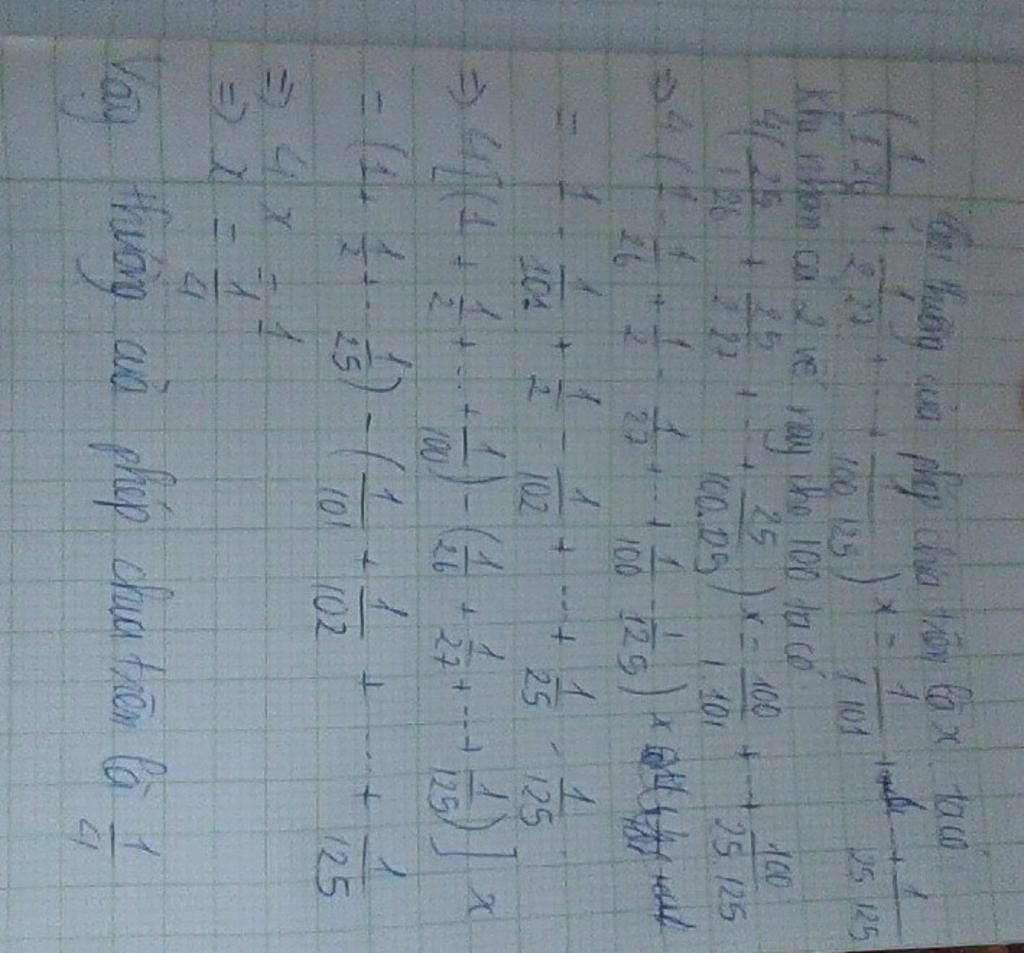 Gọi thương của phép chia trên là x ta có
(1/1.26 + 1/2.27 + ... + 1/100.125) x = 1/1.101 + ... + 1/25.125
Khi nhân cả 2 vế này cho 100 ta có
4(25/1.26 + 25/2.27 + ... + 25/100.125) x = 100/1.101 + ... + 100/25.125
=> 4(1 - 1/26 + 1/2 - 1/27 + ... + 1/100 - 1/125) x
= 1 - 1/101 + 1/2 - 1/102 + ... + 1/25 - 1/125
=> 4[(1 + 1/2 + ... + 1/100) - (1/26 + 1/27 + ... + 1/125)] x
= (1 + 1/2 + ... 1/25) - (1/101 + 1/102 + ... + 1/125)
=> 4 x = 1
=> x = 1/4
Vậy thương của phép chia trên là 1/4